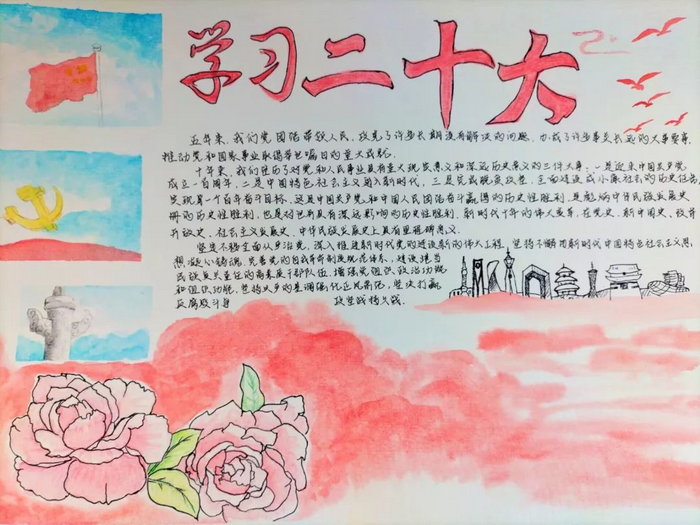 学习二十大
五年来，我们党团结带领人民，攻克了许多长期没有解决的问题，办成了许多事关长远的大事要事，
推动党和国家事业取得举世瞩目的重大成就。
十年来，我们经历了对党和人民事业具有重大现实意义和深远历史意义的三件大事，一是迎来中国共产党
成立一百周年，二是中国特色社会主义进入新时代，三是完成脱贫攻坚、全面建成小康社会的历史任务，
实现第一个百年奋斗目标。这是中国共产党和中国人民团结奋斗赢得的历史性胜利，是彪炳中华民族发展史
册的历史性胜利，也是对世界具有深远影响的历史性胜利。新时代十年的伟大变革，在党史、新中国史、改革
开放史、社会主义发展史、中华民族发展史上具有里程碑意义。
坚定不移全面从严治党，深入推进新时代党的建设新的伟大工程。坚持不懈用新时代中国特色社会主义思
想凝心铸魂，完善党的自我革命制度规范体系，建设堪当
民族复兴重任的高素质干部队伍，增强党组织政治功能
和组织功能，坚持以严的基调强化正风肃纪，坚决打赢
反腐败斗争 攻坚战持久战。